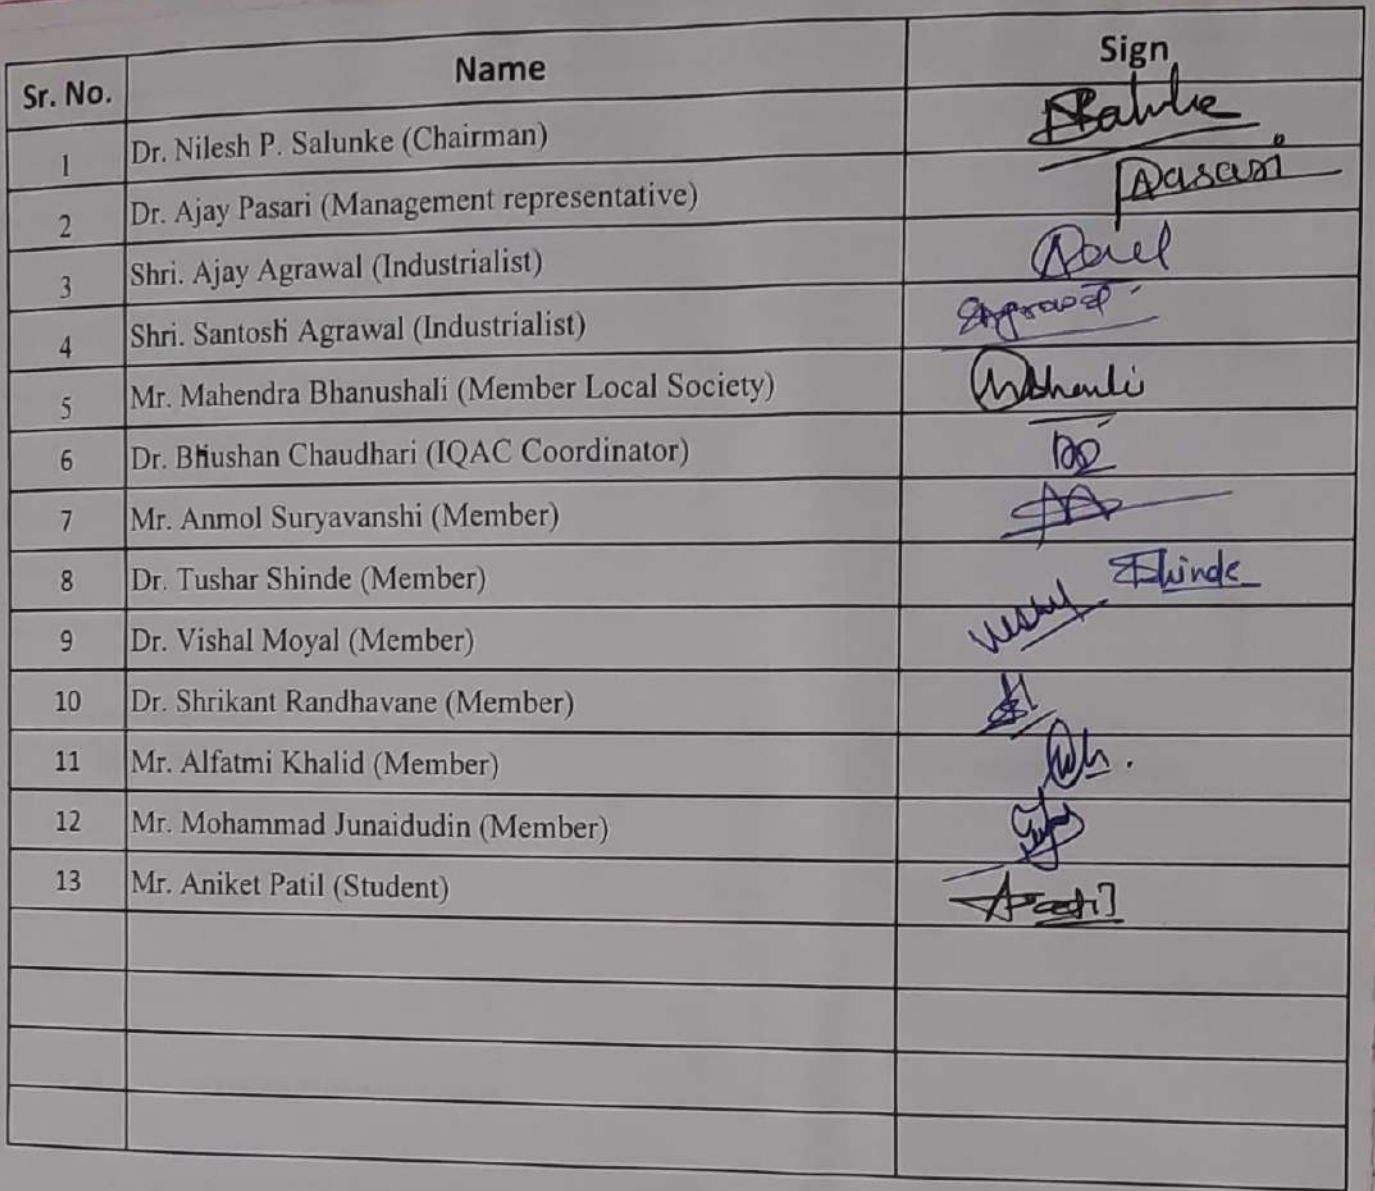 Sr. No. Name Sign
1 Dr. Nilesh P. Salunke (Chairman) Salunke
2 Dr. Ajay Pasari (Management representative) Pasari
3 Shri. Ajay Agrawal (Industrialist)
4 Shri. Santosh Agrawal (Industrialist) Agrawal
5 Mr. Mahendra Bhanushali (Member Local Society)
6 Dr. Bhushan Chaudhari (IQAC Coordinator)
7 Mr. Anmol Suryavanshi (Member)
8 Dr. Tushar Shinde (Member) Shinde
9 Dr. Vishal Moyal (Member)
10 Dr. Shrikant Randhavane (Member)
11 Mr. Alfatmi Khalid (Member)
12 Mr. Mohammad Junaidudin (Member)
13 Mr. Aniket Patil (Student)